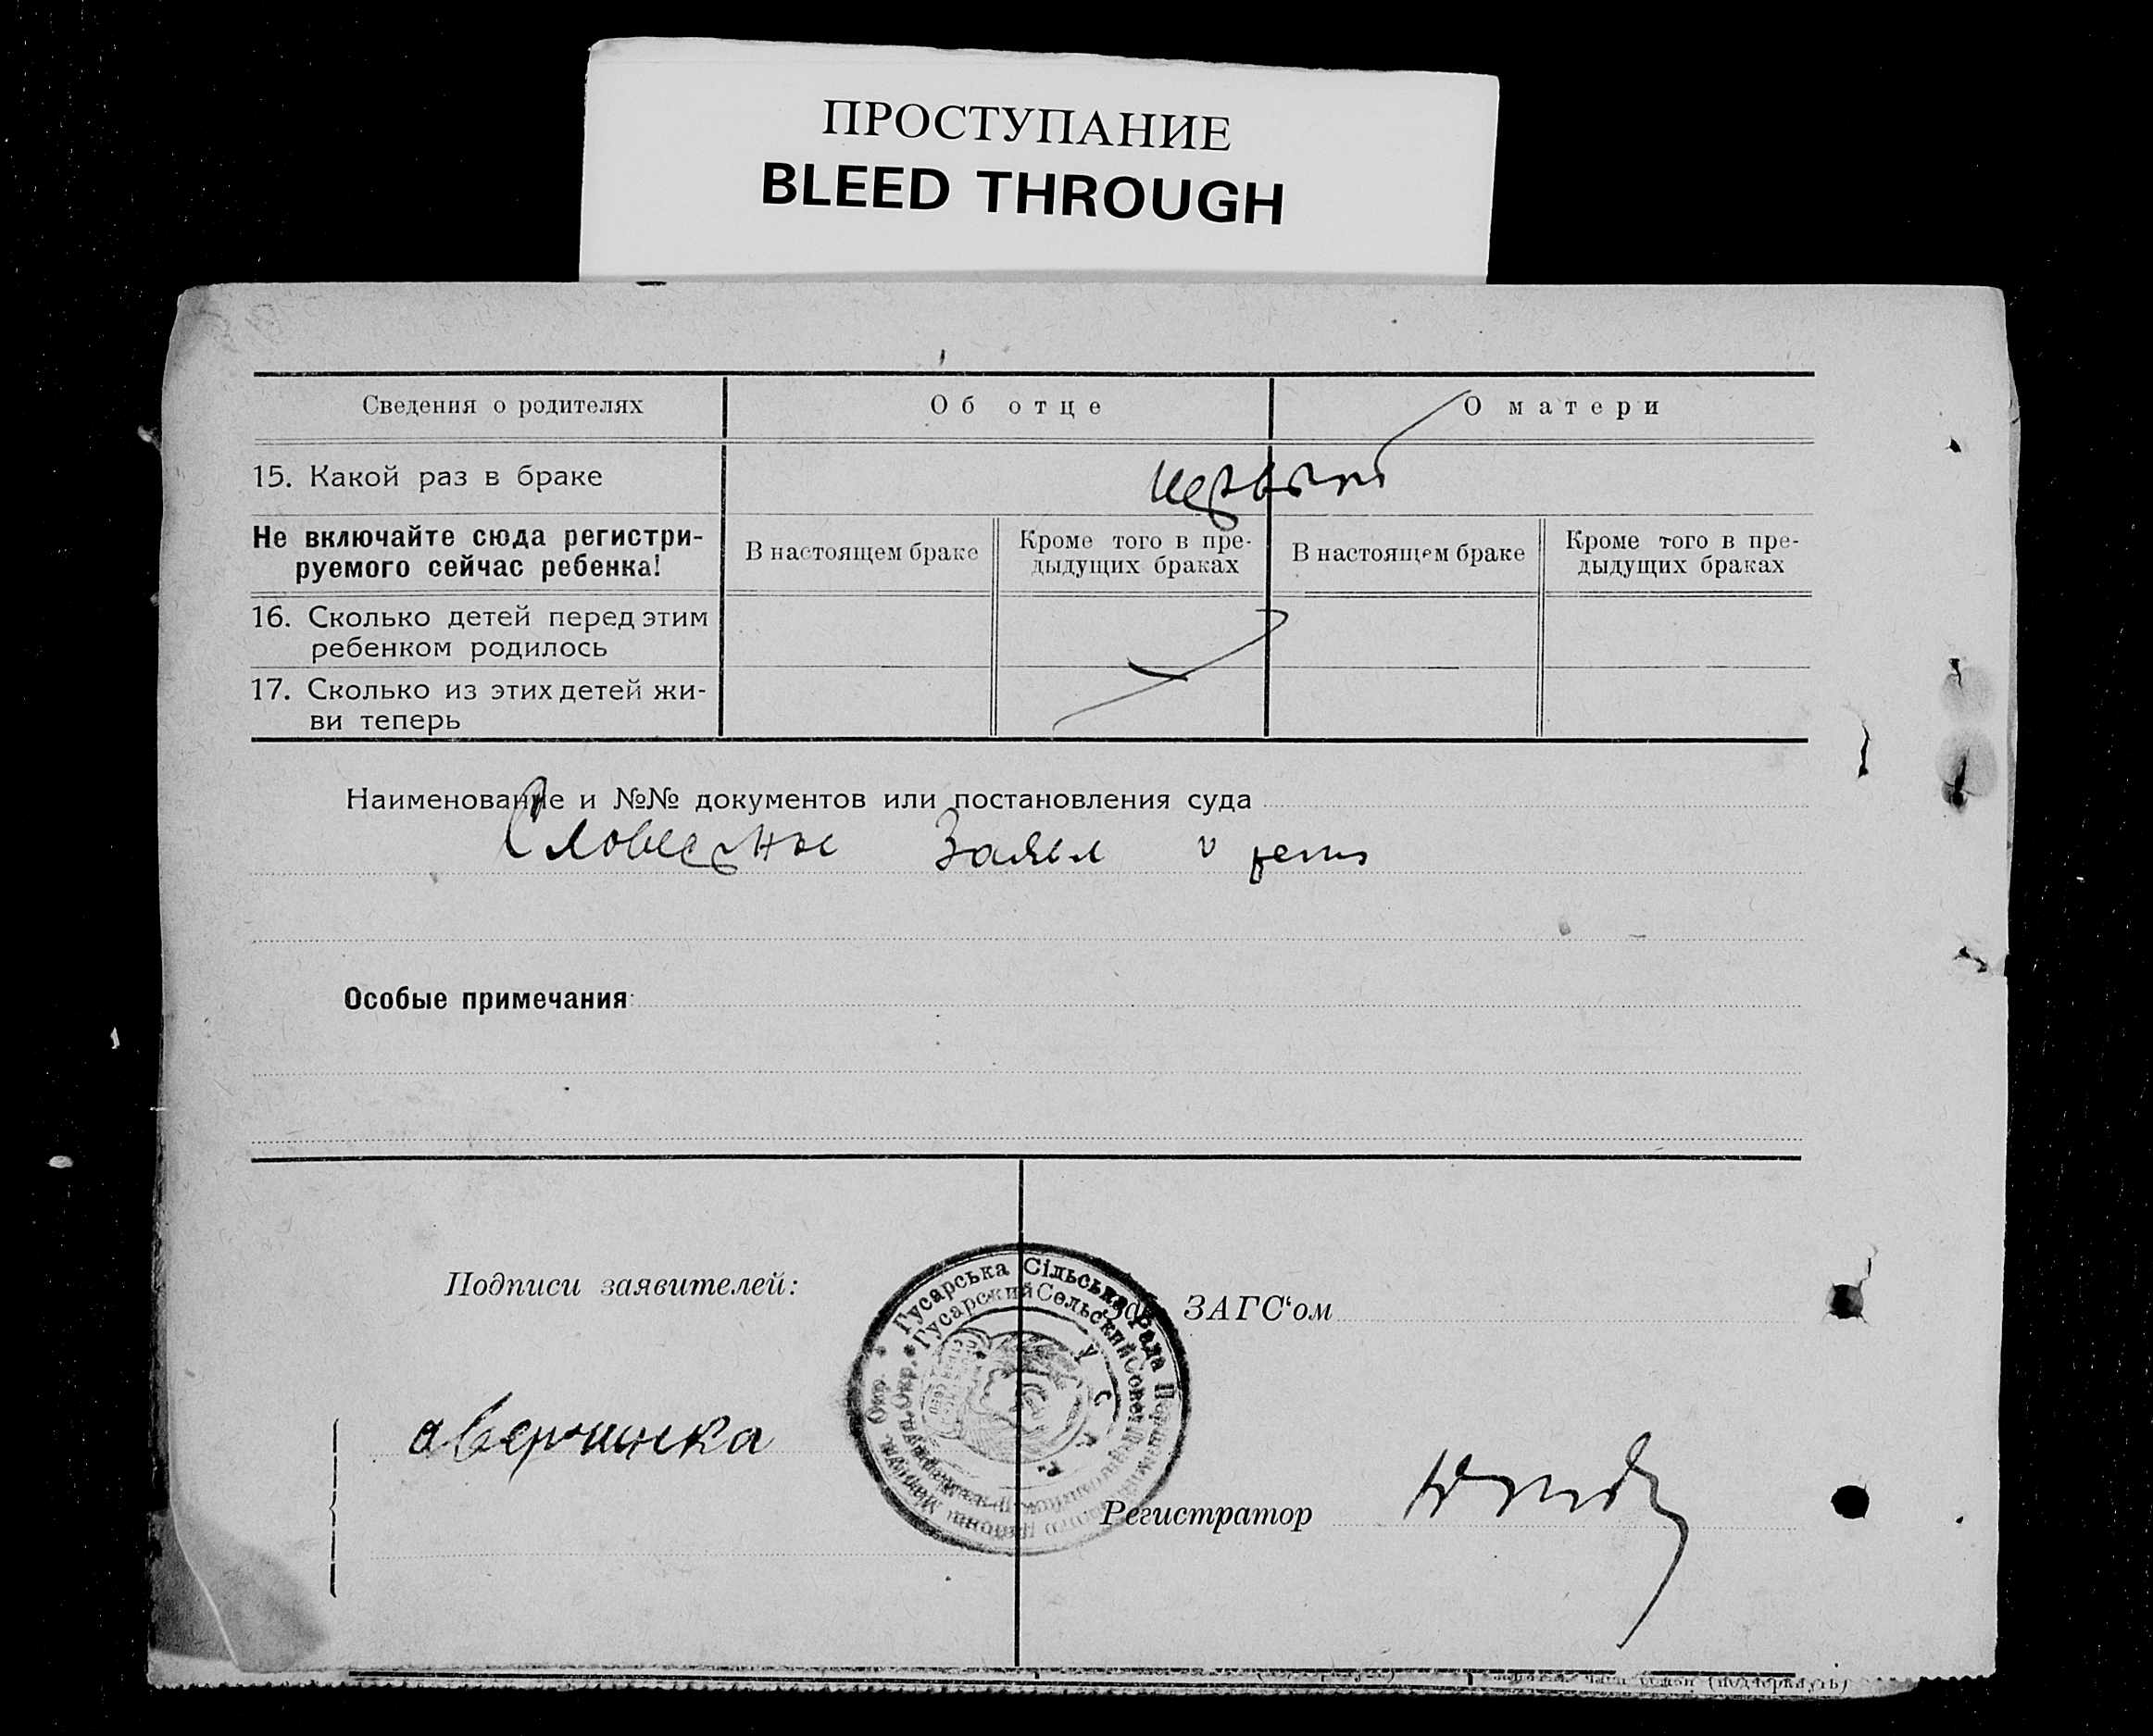 ПРОСТУПАНИЕ
BLEED THROUGH
Сведения о родителях
Об отце
О матери
15. Какой раз в браке
первый
Не включайте сюда регистри-
руемого сейчас ребенка!
В настоящем браке
Кроме того в пре-
дыдущих браках
В настоящем браке
Кроме того в пре-
дыдущих браках
16. Сколько детей перед этим
ребенком родилось
17. Сколько из этих детей жи-
ви теперь
Наименование и №№ документов или постановления суда
Словесное Заявл
Особые примечания:
Подписи заявителей:
ЗАГС‘ом
Гусарська Сільська Рада
Гусарский Сельский Совет
У С Р Р
Регистратор
(подчеркнуть)